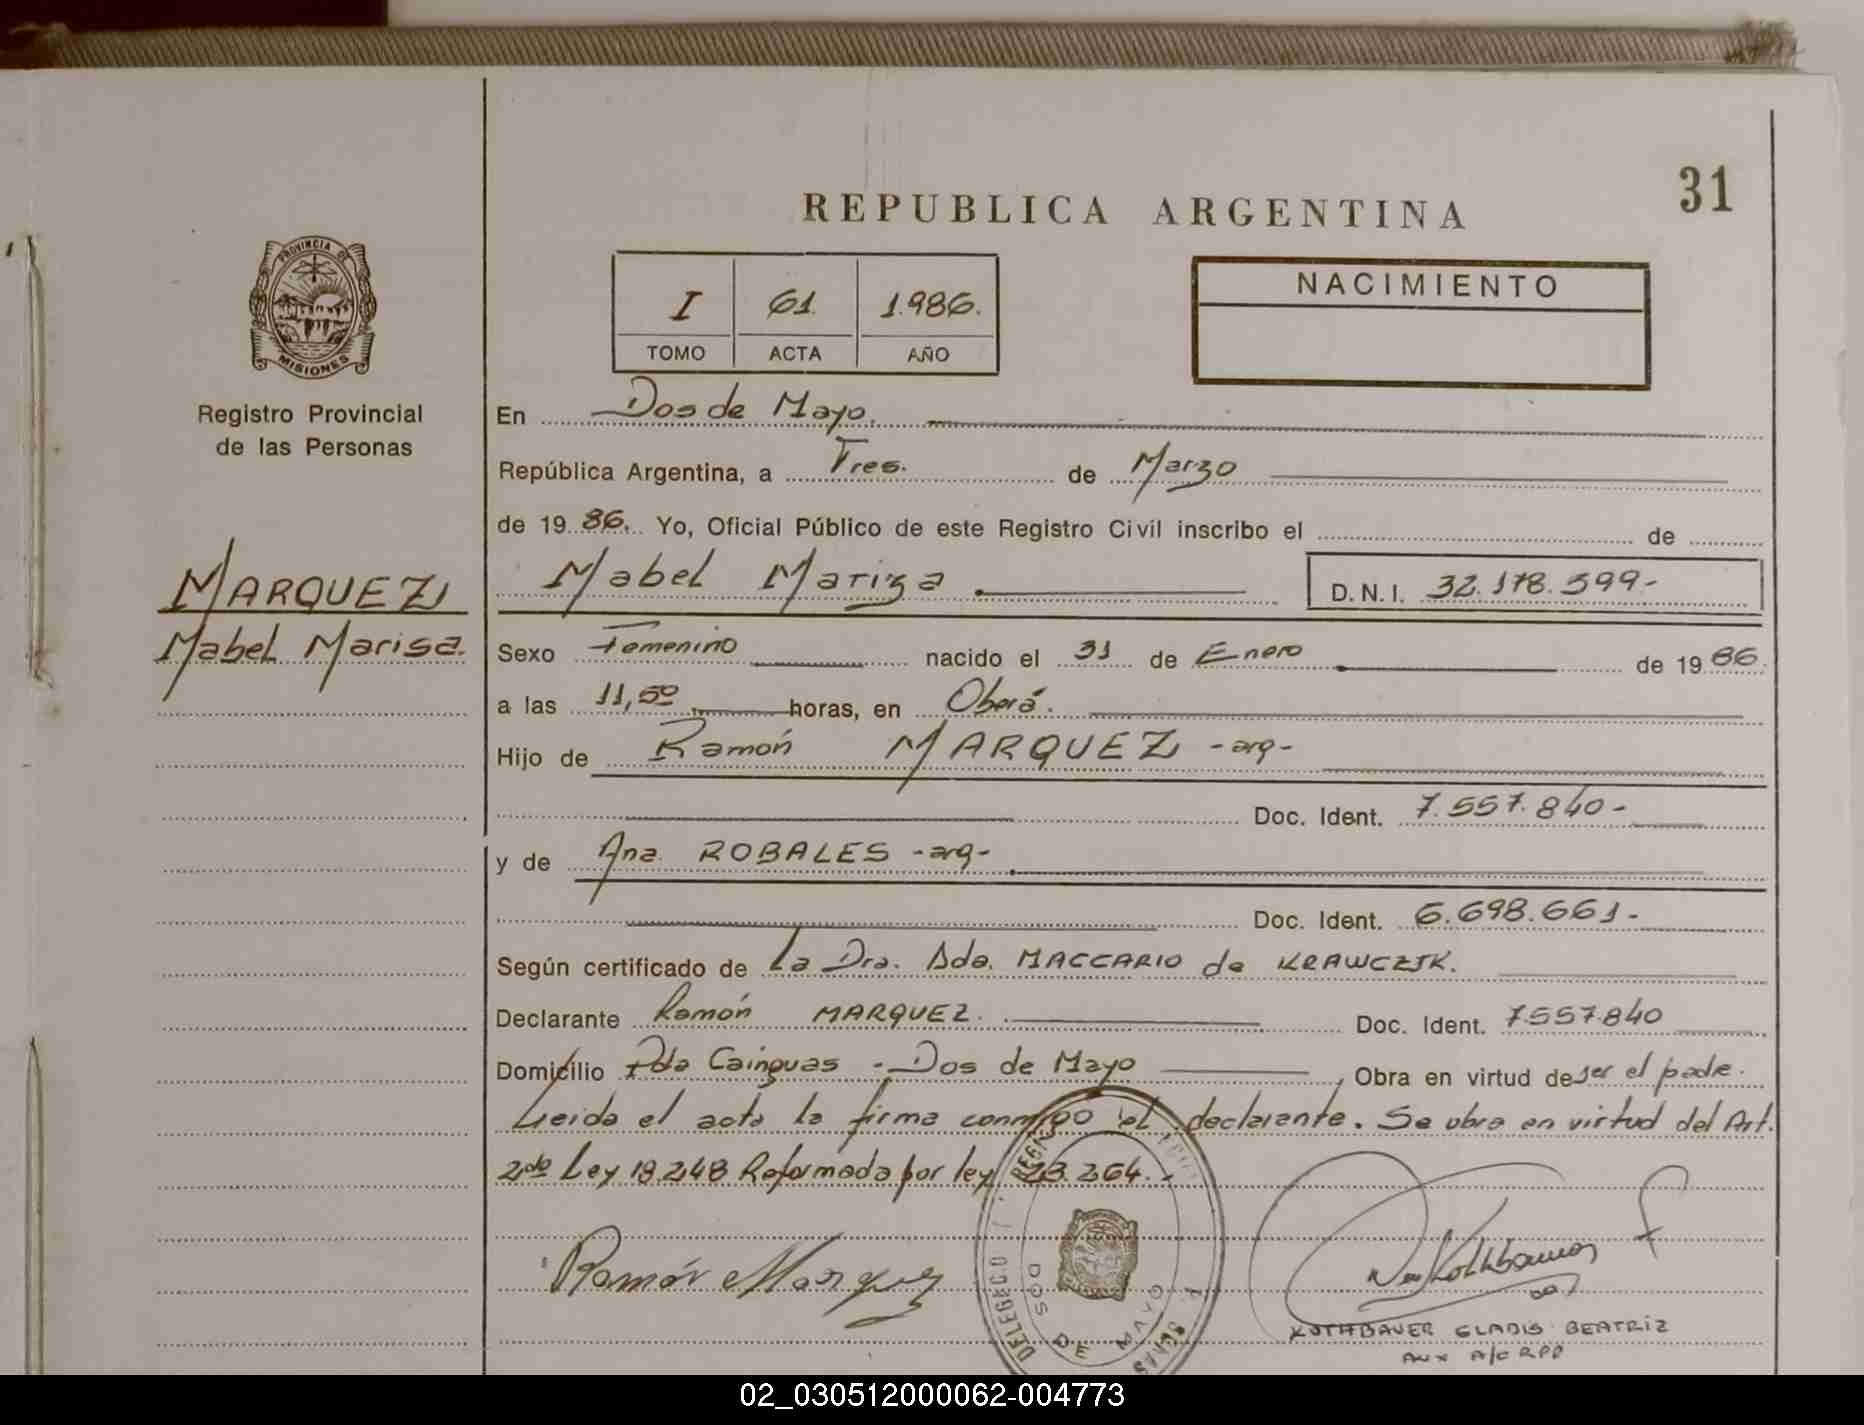 31
REPUBLICA ARGENTINA
PROVINCIA DE
MISIONES
I 61. 1.986.
TOMO ACTA AÑO
NACIMIENTO
Registro Provincial
de las Personas
MARQUEZ
Mabel Marisa.
En Dos de Mayo.
República Argentina, a Tres. de Marzo
de 19 86. Yo, Oficial Público de este Registro Civil inscribo el de
Mabel Mariza D.N.I. 32.178.399-
Sexo Femenino nacido el 31 de Enero de 19 86.
a las 11,50 horas, en Oberá.
Hijo de Ramón MARQUEZ -arg-
Doc. Ident. 7.557.840-
y de Ana ROBALES -arg-
Doc. Ident. 6.698.661-
Según certificado de La Dra. Ada. MACCARIO de KRAWCZIK.
Declarante Ramón MARQUEZ. Doc. Ident. 7.557.840
Domicilio Pda Cainguas - Dos de Mayo Obra en virtud de ser el padre.
Leida el acta la firma conmigo el declarante. Se obra en virtud del Art.
2do Ley 18.248 Reformada por ley 23.264.-
Ramón Marquez
DOS DE MAYO
KOTHBAUER GLADIS BEATRIZ
AUX A/C RPP
02_030512000062-004773